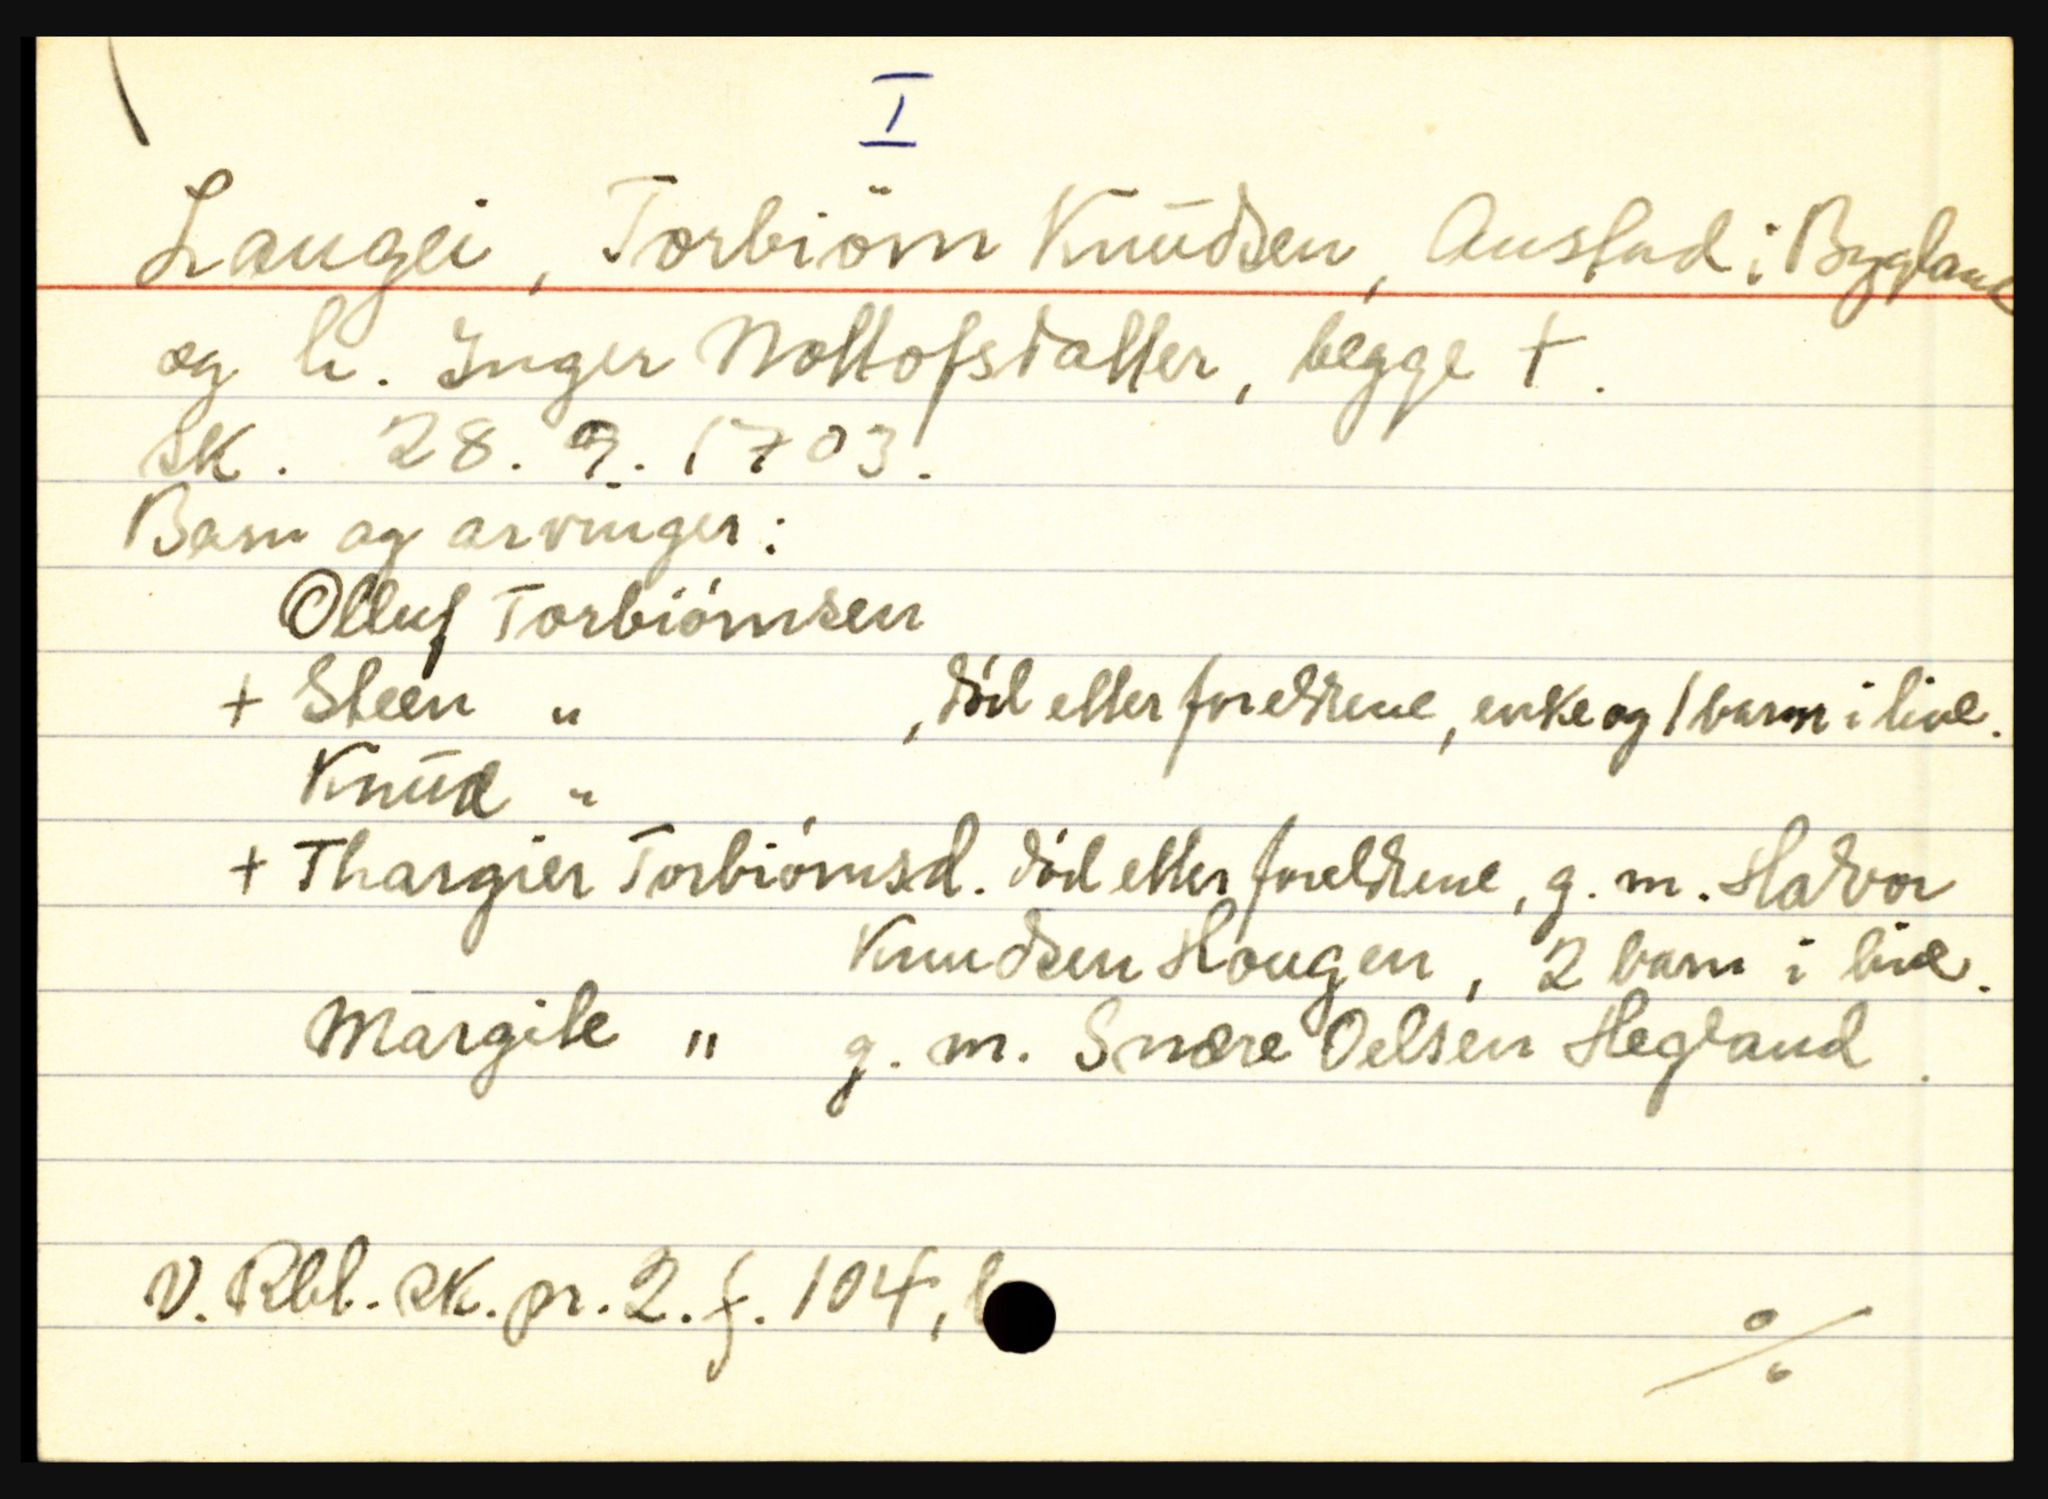 I
Langei, Torbiörn Knudsen, Austad i Bygland
og h. Inger Nottofsdatter, begge +.
sk. 28. 9. 1703.
Barn og arvinger:
Olluf Torbiörnsen
+ Steen " , död etter foreldrene, enke og 1 barn i live.
Knud "
+ Thargier Torbiörnsd. död etter foreldrene, g. m. Hadvor
Knudsen Hougen, 2 barn i live.
Margite " g. m. Snære Oelsen Hegland.
V. Rbl. sk. pr. 2. f. 104, b
%